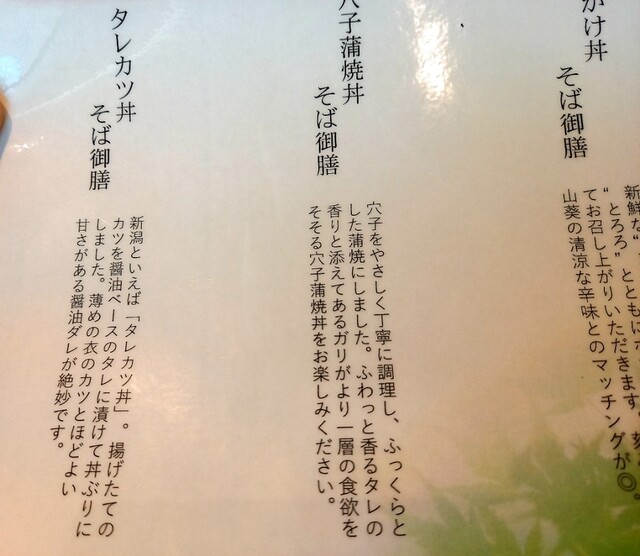 がけ丼
そば御膳
新鮮な“
“とろろ”とともに
てお召し上がりいただきます。
山葵の清涼な辛味とのマッチングが◎。
穴子蒲焼丼
そば御膳
穴子をやさしく丁寧に調理し、ふっくらと
した蒲焼にしました。ふわっと香るタレの
香りと添えてあるガリがより一層の食欲を
そそる穴子蒲焼丼をお楽しみください。
タレカツ丼
そば御膳
新潟といえば「タレカツ丼」。揚げたての
カツを醤油ベースのタレに漬けて丼ぶりに
しました。薄めの衣のカツとほどよい
甘さがある醤油ダレが絶妙です。